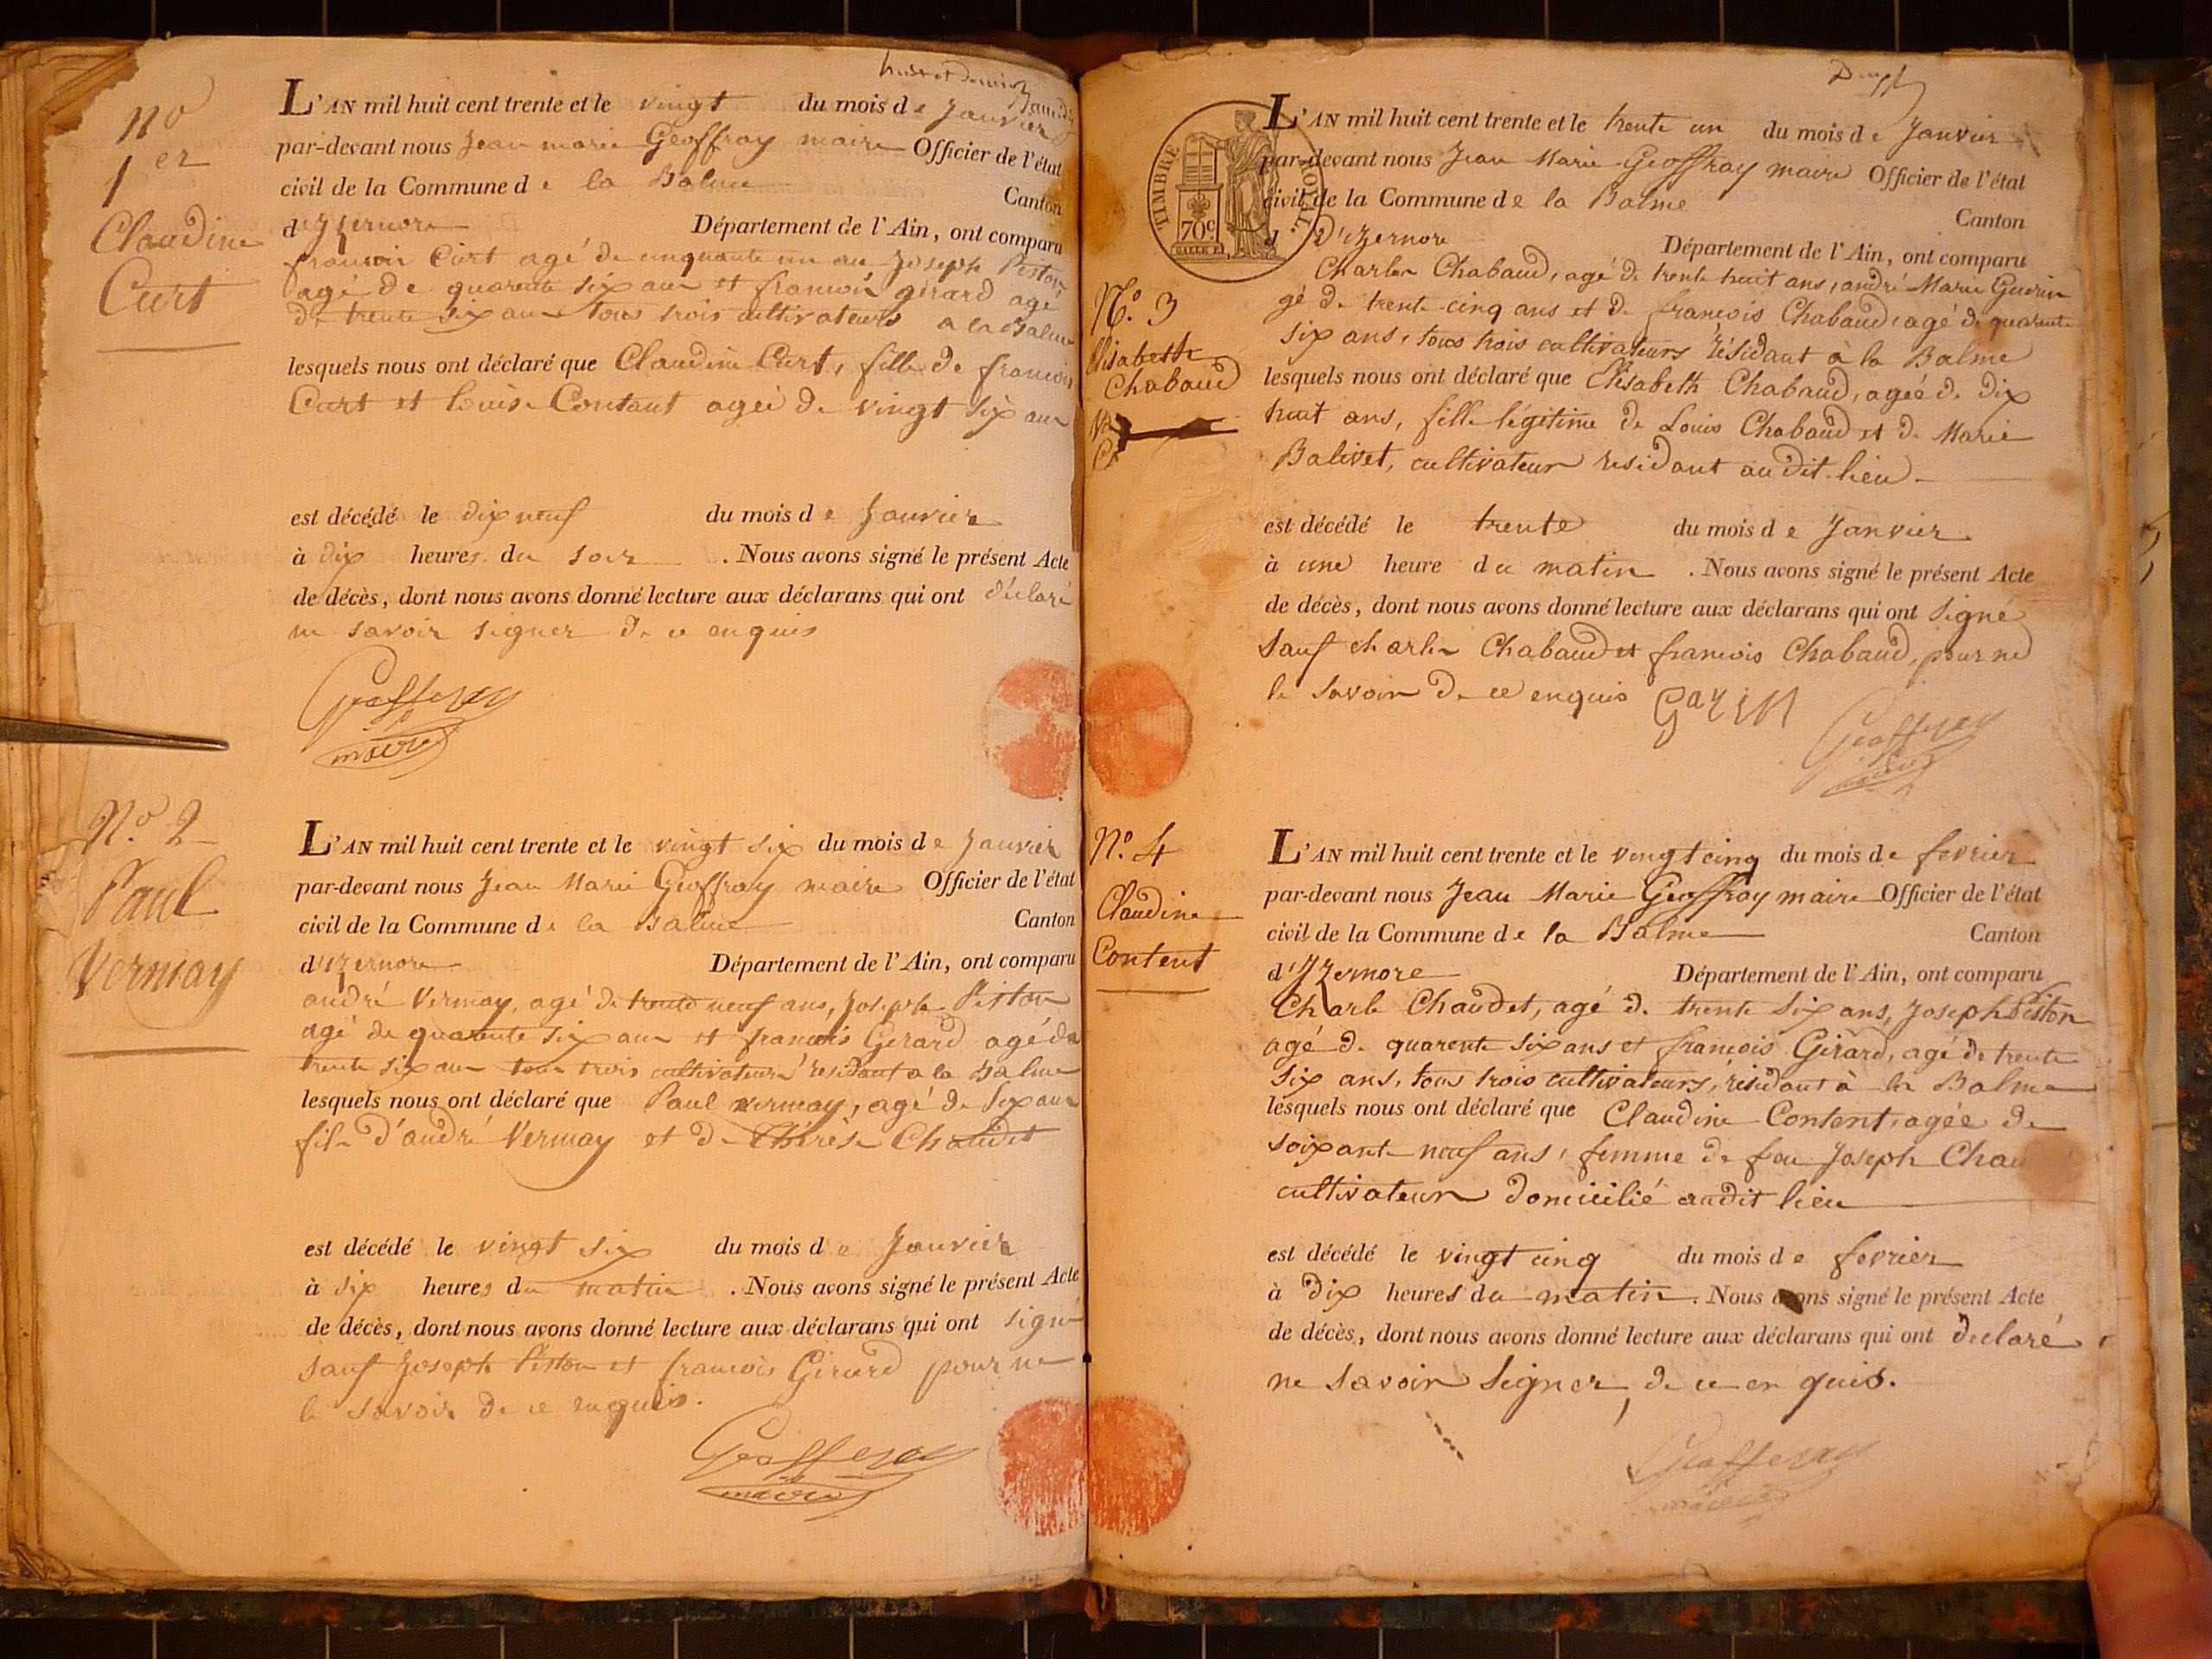 huit et dernier
no
1er
Claudine
Curt
L'AN mil huit cent trente et le vingt du mois de Janvier
par-devant nous Jean marie Geoffray maire Officier de l'état
civil de la Commune de la Balme Canton
d'Izernore Département de l'Ain, ont comparu
francois Curt agé de cinquante un ans Joseph Piston
agé de quarente six ans et francois girard agé
de trente six ans tous trois cultivateurs a la Balme
lesquels nous ont déclaré que Claudine Curt, fille de francois
Curt et Louise Contant agée de vingt six ans
est décédé le dix neuf du mois de Janvier
à dix heures du soir . Nous avons signé le présent Acte
de décès, dont nous avons donné lecture aux déclarans qui ont déclaré
ne savoir signer de ce enquis
Geofferay
maire
No. 2
Paul
Vermay
L'AN mil huit cent trente et le vingt six du mois de Janvier
par-devant nous Jean Marie Geoffray maire Officier de l'état
civil de la Commune de la Balme Canton
d'izernore Département de l'Ain, ont comparu
andré Vermay, agé de trente neuf ans, Joseph Piston
agé de quarente six ans et francois Gerard agé de
trente six ans tous trois cultivateurs résidant a la Balme
lesquels nous ont déclaré que Paul vermay, agé de six ans
fils d'andré Vermay et de Thérèse Chaudet
est décédé le vingt six du mois de Janvier
à six heures du matin . Nous avons signé le présent Acte
de décès, dont nous avons donné lecture aux déclarans qui ont signé
sauf Joseph Piston et francois Girard pour ne
le savoir de ce enquis.
Geofferay
maire
TIMBRE ROYAL
70c
L'AN mil huit cent trente et le trente un du mois de Janvier
par-devant nous Jean Marie Geoffray maire Officier de l'état
civil de la Commune de la Balme Canton
d D'izernore Département de l'Ain, ont comparu
Charles Chabaud, agé de trente huit ans, andré Marie Guerin
gé de trente cinq ans et de francois Chabaud, agé de quarente
six ans, tous trois cultivateurs résidant à la Balme
No. 3
Elisabeth
Chabaud
lesquels nous ont déclaré que Elisabeth Chabaud, agée de dix
huit ans, fille légitime de Louis Chabaud et de Marie
Balivet, cultivateur residant au dit lieu
est décédé le trente du mois de Janvier
à une heure du matin . Nous avons signé le présent Acte
de décès, dont nous avons donné lecture aux déclarans qui ont signé
sauf charles Chabaud et francois Chabaud, pour ne
le savoir de ce enquis
Geofferay
maire
No. 4
Claudine
Content
L'AN mil huit cent trente et le vingt cinq du mois de fevrier
par-devant nous Jean Marie Geoffray maire Officier de l'état
civil de la Commune de la Balme Canton
d'Izernore Département de l'Ain, ont comparu
Charle Chaudet, agé de trente six ans, Joseph Piston
agé de quarente six ans et francois Girard, agé de trente
six ans, tous trois cultivateurs, résidant à la Balme
lesquels nous ont déclaré que Claudine Content, agée de
soixante neuf ans, femme de feu Joseph Chau
cultivateur domicilié audit lieu
est décédé le vingt cinq du mois de fevrier
à dix heures du matin . Nous avons signé le présent Acte
de décès, dont nous avons donné lecture aux déclarans qui ont declaré
ne savoir signer, de ce en quis.
Geofferay
maire